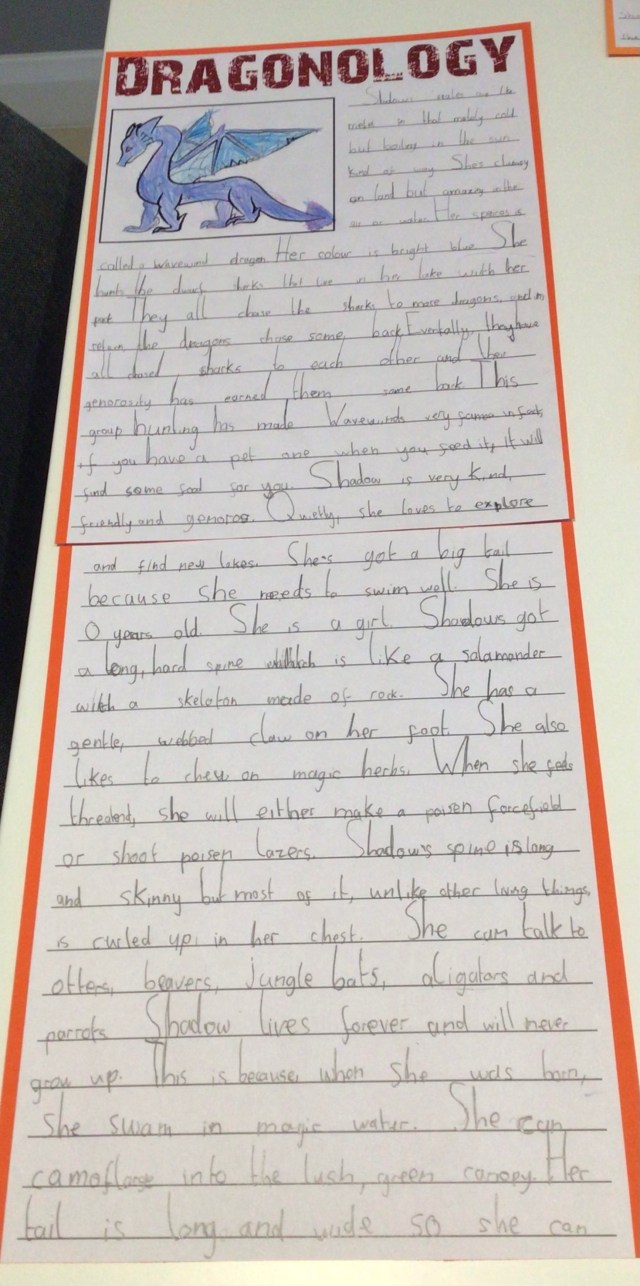 DRAGONOLOGY
Shadows scales are like
metal in that mostly cold
but boiling in the sun
kind of way. She's clumsy
on land but amazing in the
air or water. Her species is
called a wavewind dragon. Her colour is bright blue. She
hunts the dwarf sharks that live in her lake with her
They all chase the sharks to more dragons, and in
return the dragons chase some, back. Eventally, they have
all chased sharks to each other and their
genorosity has earned them some back. This
group hunting has made Wavewinds very famos. in fact,
if you have a pet one when you feed it, It will
find some food for you. Shadow is very kind,
friendly and genoros. Quietly, she loves to explore
and find new lakes. She's got a big tail
because she needs to swim well. She is
0 years old. She is a girl. Shadows got
a long, hard spine which is like a salamander
with a skeleton made of rock. She has a
gentle, webbed claw on her foot. She also
likes to chew on magic herbs. When she feels
threatend, she will either make a poisen forcefield
or shoot poisen lazers. Shadow's spine is long
and skinny but most of it, unlike other living things,
is curled up, in her chest. She can talk to
otters, beavers, Jungle bats, aligators and
parrots. Shadow lives forever and will never
grow up. This is because, when she was born,
she swam in magic water. She can
camoflarge into the lush, green canopy. Her
tail is long and wide so she can